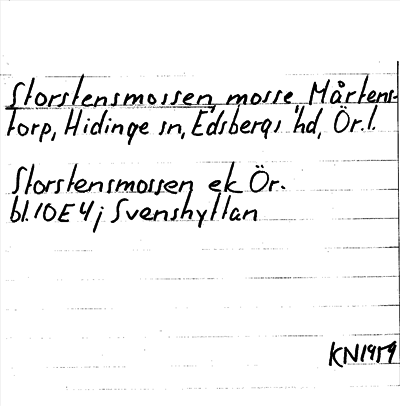 Storstensmossen, mosse, Mårtens-
torp, Hidinge sn, Edsbergs hd, Ör.l.
Storstensmossen ek Ör.
bl. 10E 4j Svenshyttan
KN1959